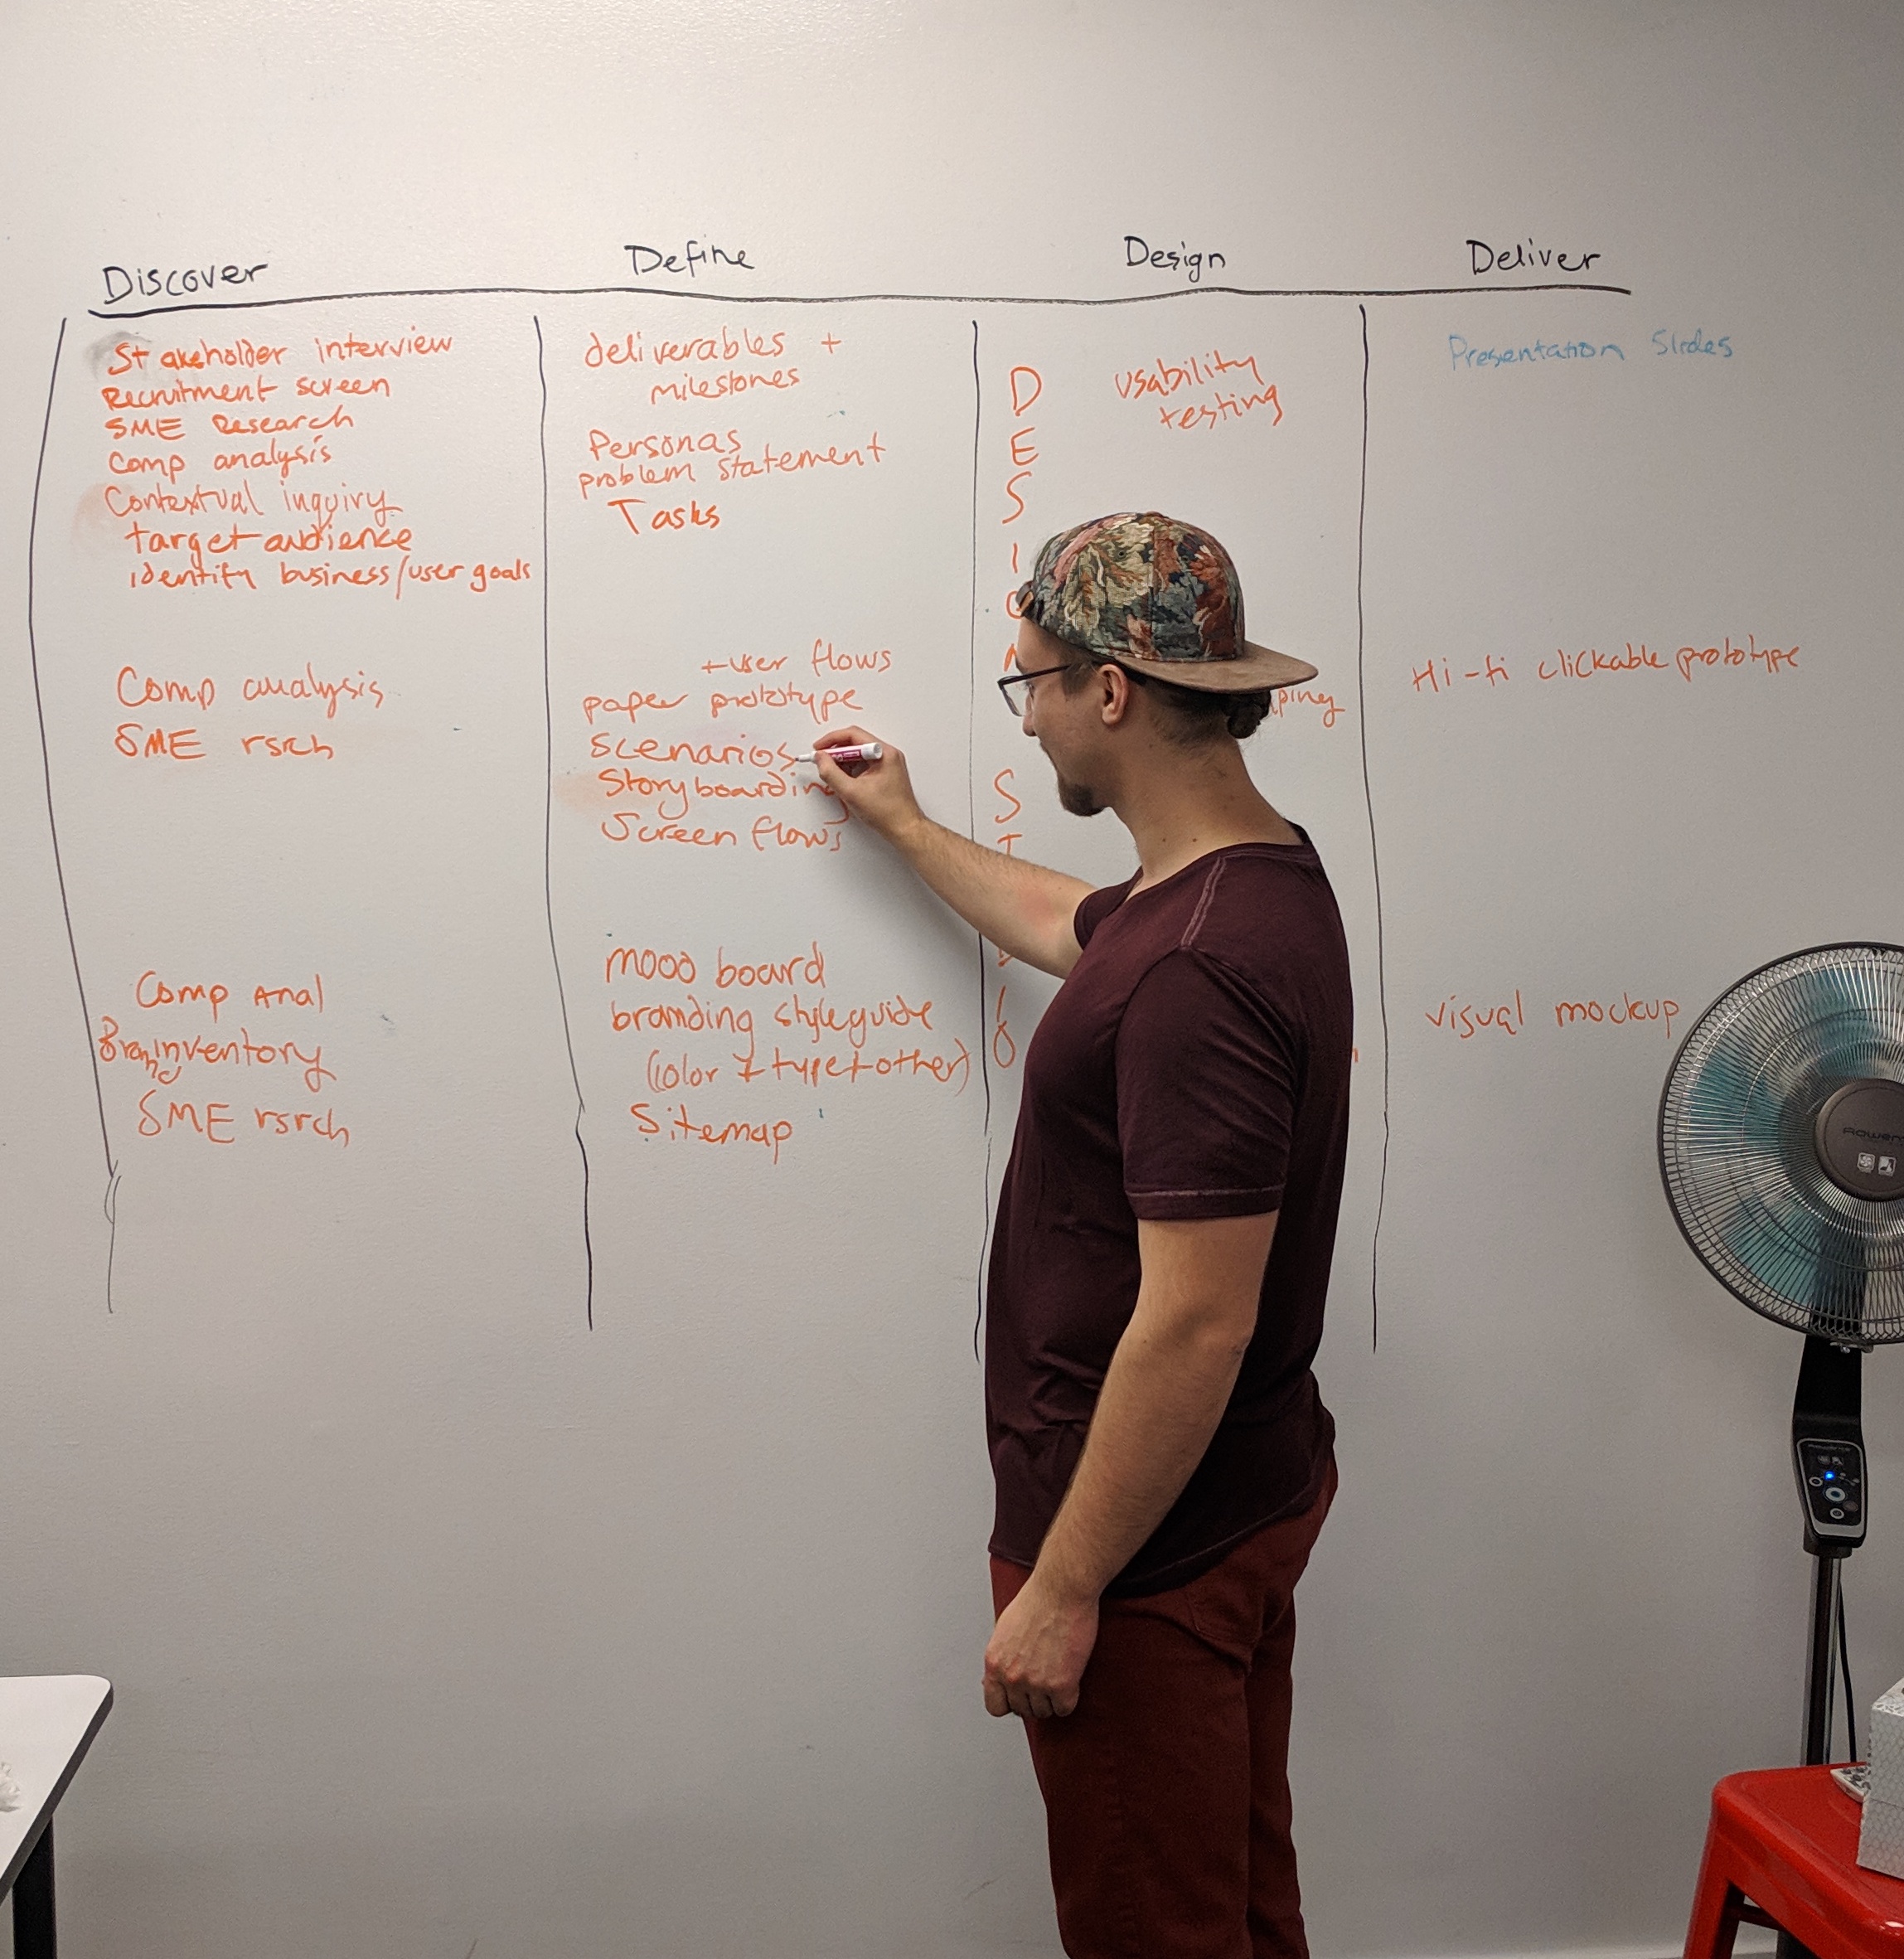 Discover
Define
Design
Deliver
Stakeholder interview
Recruitment screen
SME Research
Comp analysis
Contextual inquiry
target audience
identify business/user goals
Comp analysis
SME rsrch
Comp Anal
Brand inventory
SME rsrch
deliverables +
milestones
Personas
problem statement
Tasks
+user flows
paper prototype
Scenarios
Storyboarding
Screen flows
mood board
branding styleguide
(color + type + other)
Sitemap
D
E
S
I
S
usability
testing
Presentation Slides
Hi-fi clickable prototype
visual mockup